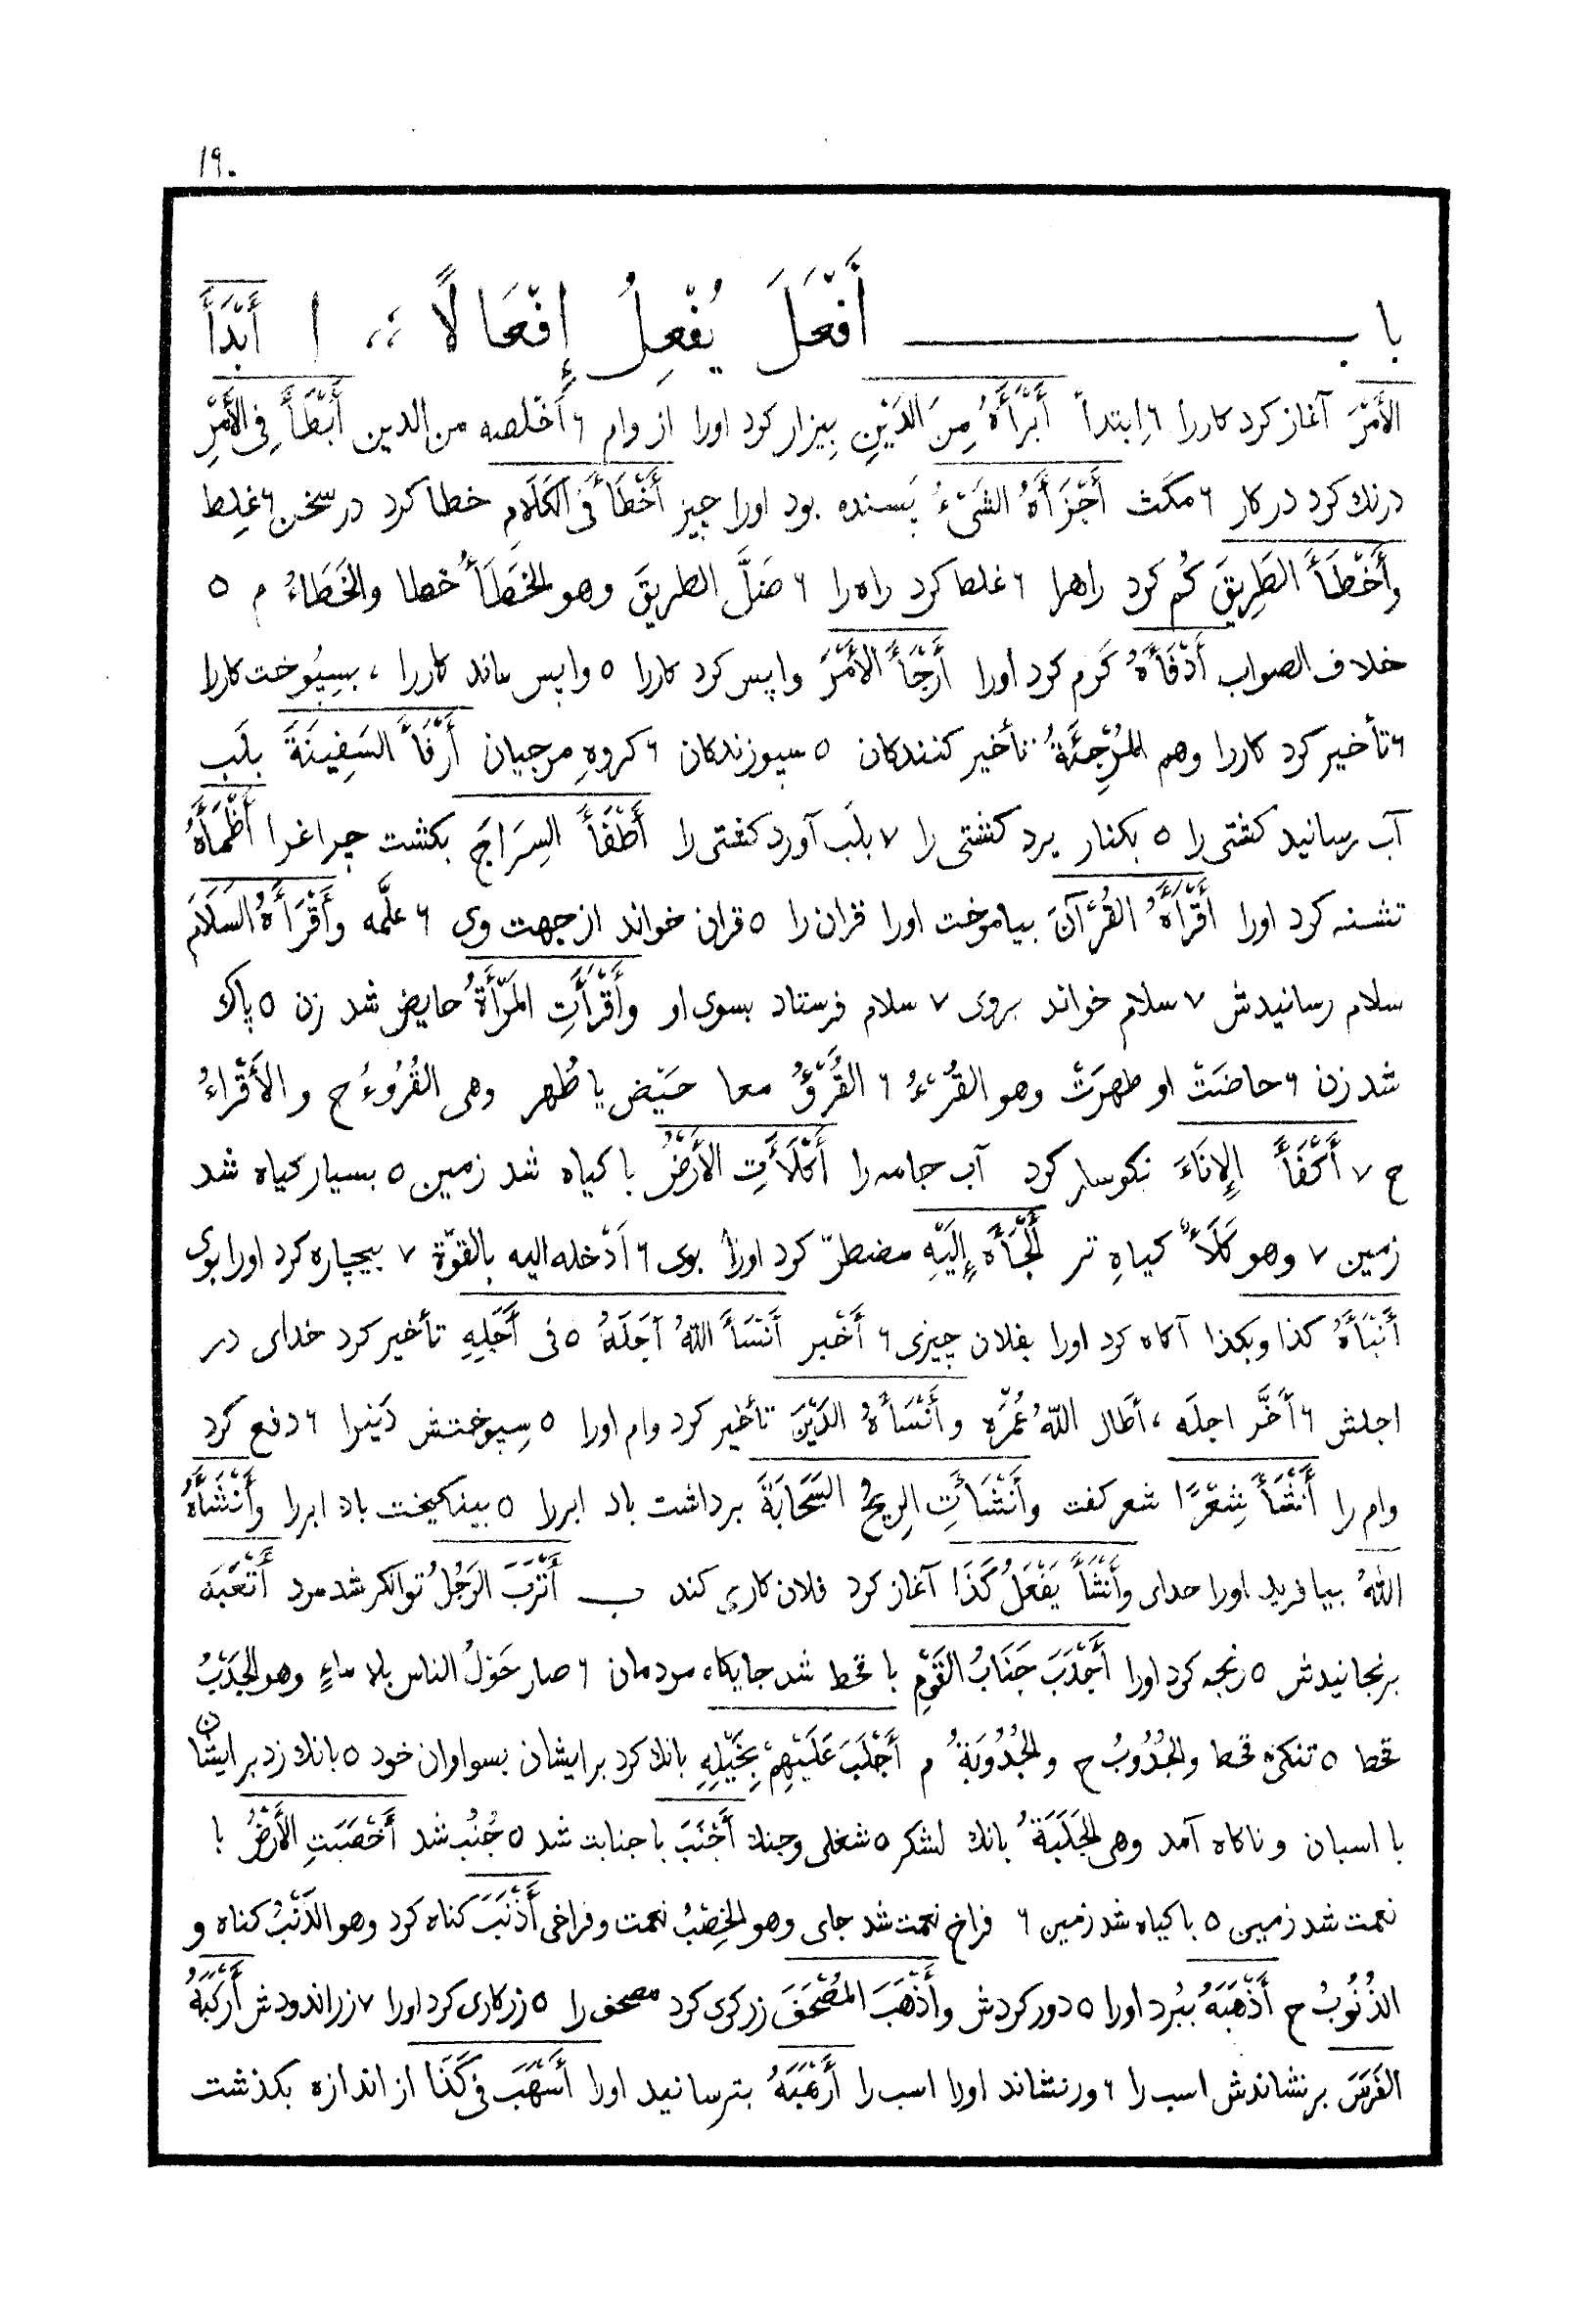 ١٩٠
باب أَفْعَلَ يُفْعِلُ إِفْعَالًا ،، ؛ ا أَبْدَأَ
الأَمْرَ آغاز کرد کاررا ٦ اِبتدأ أَبْرَأَهُ مِنَ الدَيْنِ بِیزار کرد اورا از وام ٦ أَخْلصه من الدین أَبْطَأَ فِی الأَمْرِ
درنك کرد در کار ٦ مکَث أَجْزَأَهُ الشَیْءُ بَسنده بود اورا چیز أَخْطَأَ فی الکَلَامِ خطا کرد در سخن ٦ غلِط
وأَخْطَأَ الطَرِیقَ کُم کرد راهرا ٦ غلط کرد راه را ٦ ضَلَّ الطریقَ وهو الخَطَأُ خطا والخَطَاءُ م ٥
خلاف الصواب أَدْفَأَهُ کَرم کرد اورا أَرْجَأَ الأَمْرَ واپس کرد کاررا ٥ واپس ماند کاررا ، بسِپُوخت کاررا
٦ تأخیر کرد کاررا وهم المُرْجِئَةُ تأخیر کنندکان ٥ سپوزندکان ٦ کروهِ مرجیان أَرْفَأَ السَفِینَةَ بلَب
آب رسانید کشتی را ٥ بکنار برد کشتی را ٧ بلَب آورد کشتی را أَطْفَأَ السِرَاجَ بکشت چراغرا أَظْمَأَهُ
تشنه کرد اورا أَقْرَأَهُ القُرْآنَ بیاموخت اورا قران را ٥ قران خواند از جهت وی ٦ علَّمه وأَقْرَأَهُ السَلَامَ
سلام رسانیدش ٧ سلام خواند بروی ٧ سلام فرستاد بسوی او وأَقْرَأَتِ المَرْأَةُ حایض شد زن ٥ پاك
شد زن ٦ حاضَتْ او طهرَتْ وهو القُرْءُ ٦ القُرْؤُ معا حَیْض یا طُهر وهی القُرُوءُ ح والأَقْرَاءُ
ح ٧ أَکْفَأَ الإِنَاءَ نکوسار کرد آب جامه را أَکْلَأَتِ الأَرْضُ با کیاه شد زمین ٥ بسیار کیاه شد
زمین ٧ وهو کَلَأٌ کیاهِ تر أَلْجَأَهُ إِلَیْهِ مضطرّ کرد اورا بوی ٦ أَدْخله الیه بالقوّة ٧ بیچاره کرد اورا بوی
أَنْبَأَهُ کذا وبکذا آکاه کرد اورا بفلان چیزی ٦ أَخْبر أَنْسَأَ اللهُ أَجَلَهُ ٥ فی أَجَلِهِ تأخیر کرد خدای در
اجلش ٦ أَخَّر اجلَه ، أطال اللهُ عُمْرَه وأَنْسَأَهُ الدَیْنَ تأخیر کرد وام اورا ٥ سِپوختش دَینرا ٦ دفع کرد
وام را أَنْشَأَ شِعْرًا شعر کفت وأَنْشَأَتِ الرِیحُ السَحَابَةَ برداشت باد ابررا ٥ بینکیخت باد ابررا وأَنْشَأَهُ
اللهُ بیافرید اورا حدای وأَنْشَأَ یَفْعَلُ کَذَا آغاز کرد فلان کاری کند ب أَتْرَبَ الرَجُلُ توانکر شد مرد أَتْعَبَهُ
برنجانیدش ٥ رنجه کرد اورا أَجْدَبَ جَنَابُ القَوْمِ با قحط شد جایکاه مردمان ٦ صار حَوْلُ الناس بلا ماءٍ وهو الجَدْبُ
قحط ٥ تنکی قحط والجُدُوبُ ح والجُدُوبَةُ م أَجْلَبَ عَلَیْهِمْ بِخَیْلِهِ بانك کرد برایشان بسواران خود ٥ بانك زد برایشان
با اسبان و ناکاه آمد وهی الجَلَبَةُ بانك لشکر ٥ شغلی وجنك أَجْنَبَ با جنابت شد ٥ جُنُب شد أَخْصَبَتِ الأَرْضُ با
نعمت شد زمین ٥ با کیاه شد زمین ٦ فراخ نعمت شد جای وهو الخِصْبُ نعمت وفراخی أَذْنَبَ کناه کرد وهو الذَنْبُ کناه و
الذُنُوبُ ح أَذْهَبَهُ ببُرد اورا ٥ دور کردش وأَذْهَبَ المُصْحَفَ زرکری کرد مصحف را ٥ زرکاری کرد اورا ٧ زراندودش أَرْکَبَهُ
الفَرَسَ برنشاندش اسب را ٦ ورنشاند اورا اسب را أَرْهَبَهُ بترسانید اورا أَسْهَبَ فی کَذَا از اندازه بکذشت